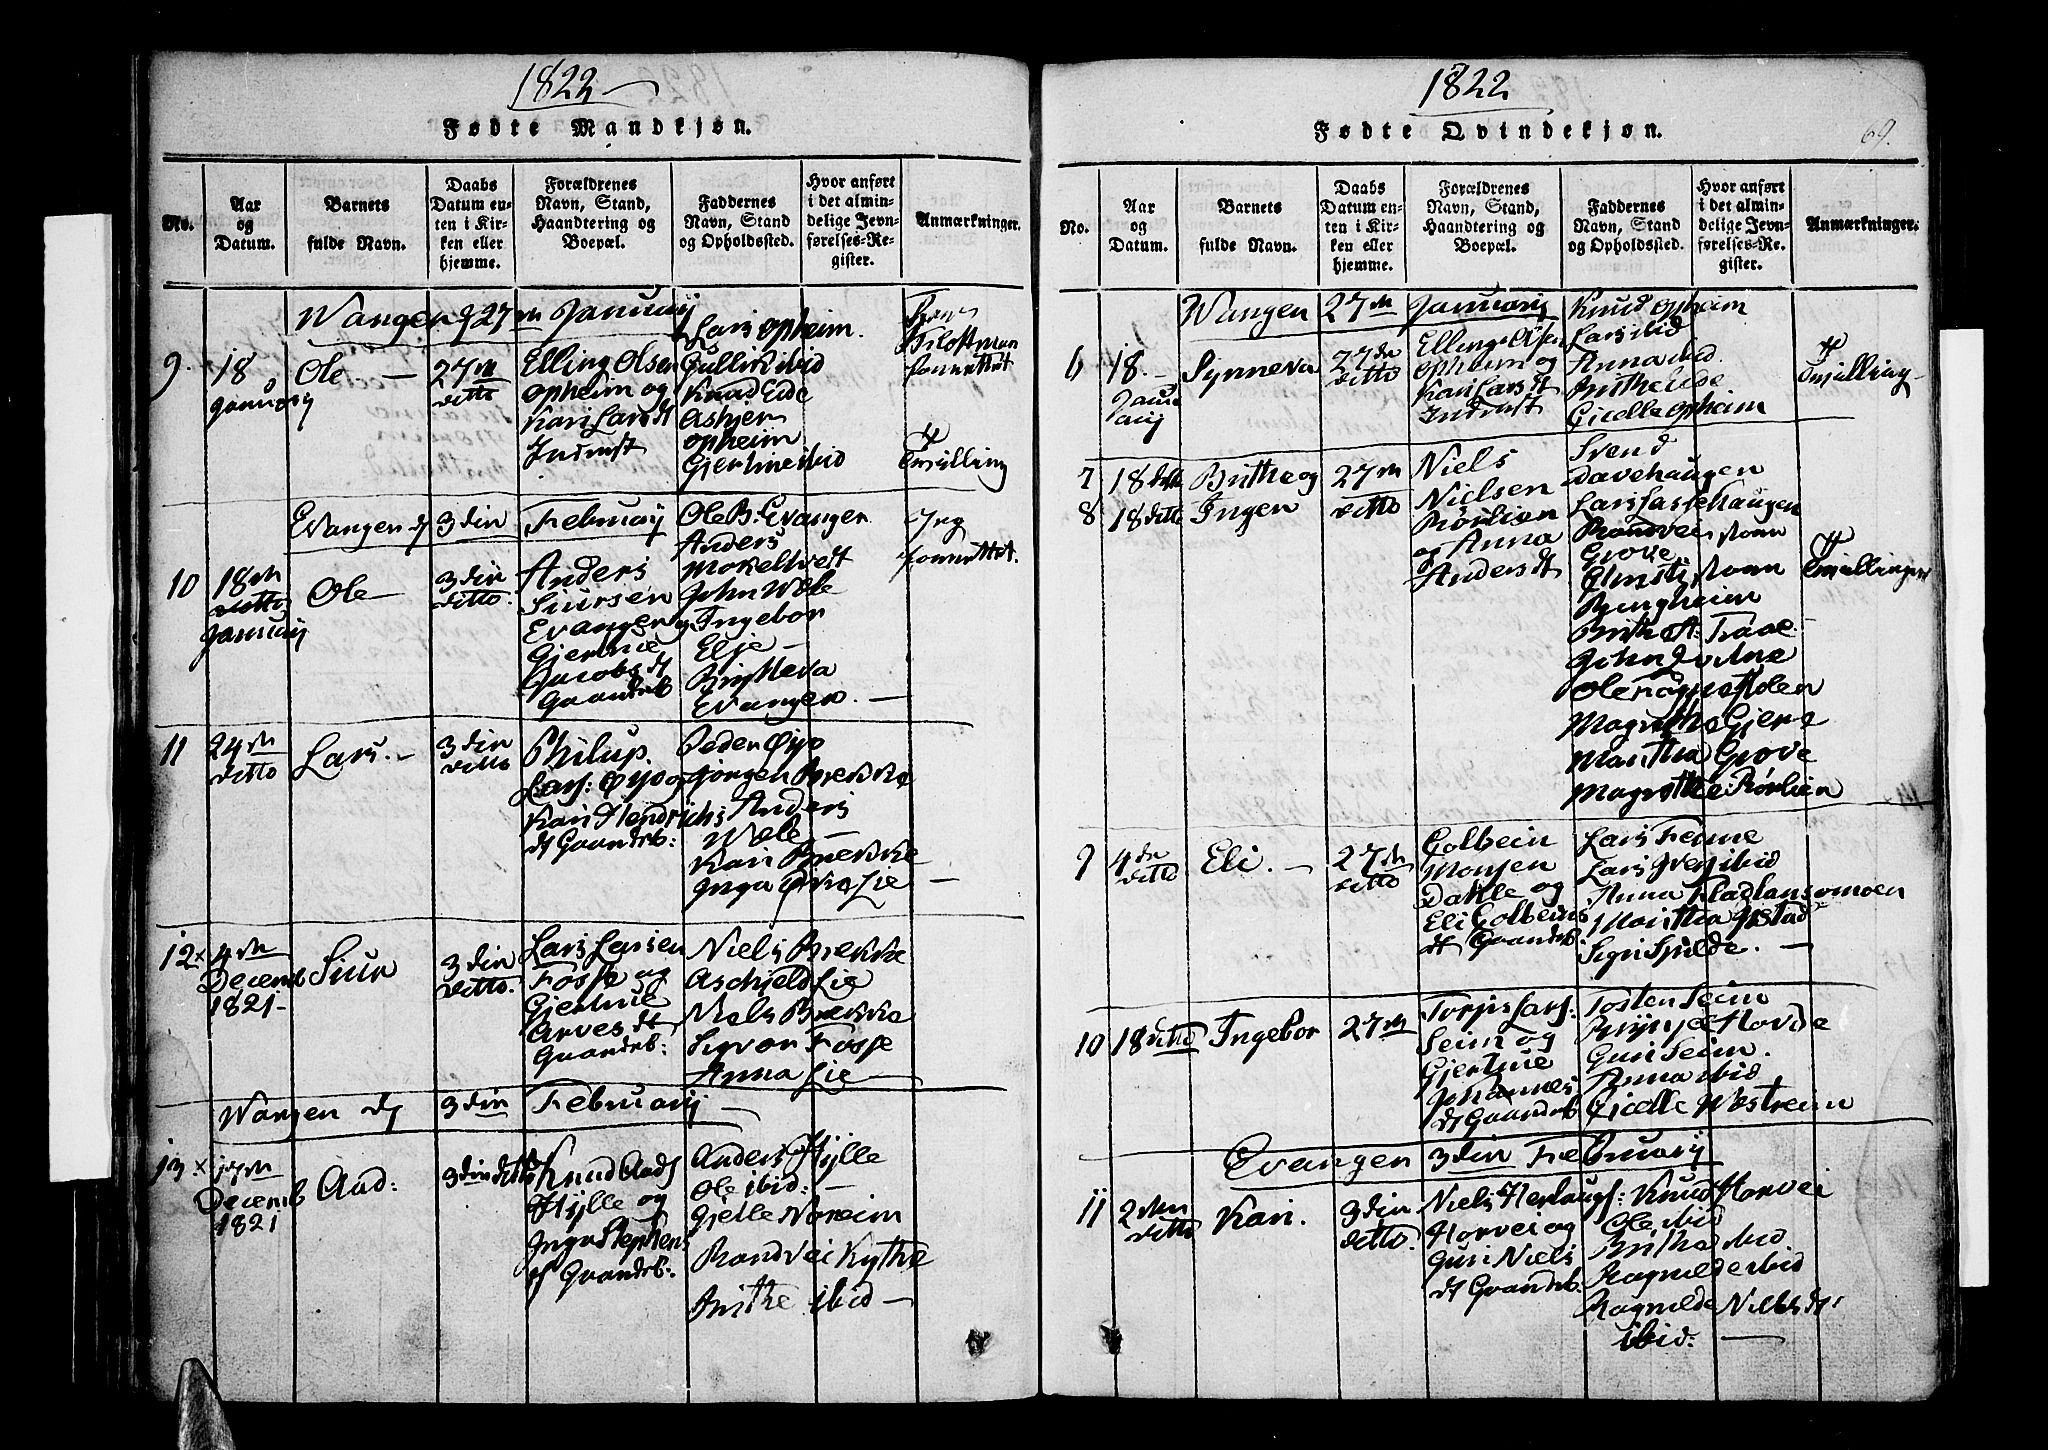 1822
Fødte Mandkjøn.
No.
Aar
og
Datum.
Barnets
fulde Navn.
Daabs
Datum en-
ten i Kir-
ken eller
hjemme.
Forældrenes
Navn, Stand,
Haandtering og
Boepæl.
Faddernes
Navn, Stand
og Opholdssted.
Hvor anført
i det almin-
delige Jevn-
førelses-Re-
gister.
Anmærkninger.
Wangen d 27 Januarij
9.
18
Januarij
Ole —
27
ditto
Elling Olsen
opheim og
Kari Larsdt
Lars opheim.
Gullik ibid
Knud Eide
Asbjør
opheim
Gjertrue ibid
Tvilling
Evangen d 3din Februarij
10
18
ditto
Januarij
Ole —
3din
ditto.
Anders
Siursen
Evanger og
Gjertrue
Jacobsdt
Gaardeb
Ole B: Evanger
Anders
John Wæle
Ingebor
Elje —
Evangen. —
11
24
ditto
Lars. —
3din
ditto
Philup.
Lars: Øyo og
Kari Hendrichs
dt Gaardeb:
Peder Øyo
Jørgen Brekke
Anders
Wæle —
Kari Brekke
Inga Lie —
12 x
4
Decemb
1821 —
Siur
3din
ditto.
Lars Larsen
Fosse og
Gjertrue
Arvesdt
Gaardeb:
Niels Brekke
Aschjeld Lie
Niels Brekke
Fosse
Anna Lie —
Wangen d 3din Februarij
13 x
17
Decemb
1821
Aad:
3din ditto
Knud Aads
Hylle og
Inga Stephens
dt Gaardeb:
Anders Hylle
Ole ibid: —
Gjelle Noreim
Randvei Kythe
Brithe ibid —
1822
Fødte Qvindekjøn.
69.
No.
Aar
og
Datum.
Barnets
fulde Navn.
Daabs
Datum en-
ten i Kir-
ken eller
hjemme.
Forældrenes
Navn, Stand,
Haandtering og
Boepæl.
Faddernes
Navn, Stand
og Opholdssted.
Hvor anført
i det almin-
delige Jevn-
førelses-Re-
gister.
Anmærkninger.
Wangen 27 Januarij
6
18. —
Januarij
Synneva
27
ditto
Elling Olsen
opheim og
Kari Larsdt
Knud opheim
Lars ibid
Anna ibid
Brithe Eide
Gicelle opheim
Tvilling —
7
18 ditto
Brithe og
27
ditto
8
18 ditto
Ingen
Niels
Nielsen
Rørlien
og Anna
Andersdt
Svend
Davehaugen
Lars Lassehaugen
Randvei
Grove
Bergheim
Brithe A: Traae —
John
Ole
Magrethe Gjere
Maritha Grove
Magrethe Rørlien
Tvillinger
9
4
ditto
Eli. —
27
ditto
Colbein
Monsen
Dahle og
Eli Colbeins
dt Gaardeb.
Lars Ferme
Lars ibid
Anna Fladlansmoen
Maritha
Sigri Spilde. —
10
18 ditto
Ingebor
27
Torgis Lars:
Seim og
Gjertrue
Johannes
dt Gaardeb
Tosten Seim
Brynjel Hovde
Guri Seim.
Anna ibid
Gicelle Westreim
Evangen 3din Februarij
11
2den
ditto
Kari.
3din
ditto.
Niels Herlaugs:
Horvei og
Guri Niels
dt Gaardeb.
Knud Horvei
Ole ibid
Britha ibid
Ragnilde ibid
Ragnilde Nielsdt
ibid. —